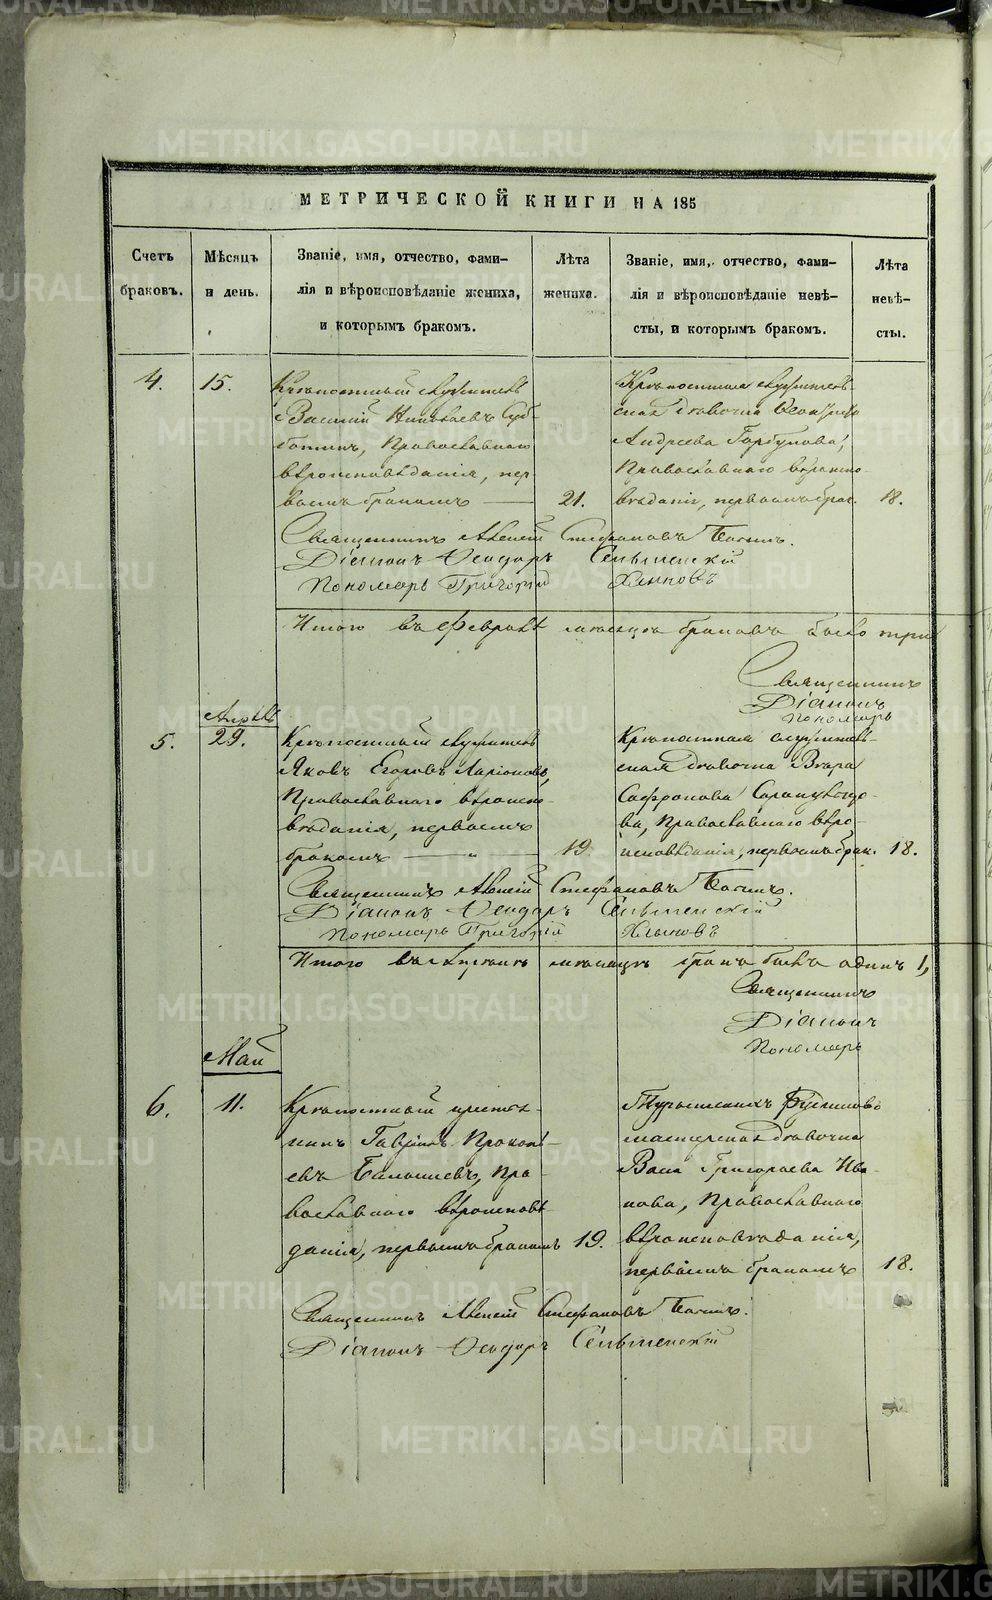 МЕТРИЧЕСКОЙ КНИГИ НА 185
Счетъ браковъ.
Мѣсяцъ и день.
Званіе, имя, отчество, фами-
лія и вѣроисповѣданіе жениха,
и которымъ бракомъ.
Лѣта жениха.
Званіе, имя, отчество, фами-
лія и вѣроисповѣданіе невѣ-
сты, и которымъ бракомъ.
Лѣта невѣ-
сты.
4.
15.
Крѣпостный служитель
Василій Николаевъ Суб-
ботинъ, Православнаго
вѣроисповѣданія, пер-
вымъ бракомъ
21.
Крѣпостная служитель-
ская дѣвочка
Андреева Горбунова,
Православнаго вѣроиспо-
вѣданія, первымъ брак.
18.
Священникъ Алексій Стефановъ
Діаконъ Ѳеодоръ Сельменскій
Пономарь Григорій Хлыновъ
Итого въ Февралѣ мѣсяцѣ браковъ было три
Священникъ
Діаконъ
Пономарь
Апрѣль
5.
29.
Крѣпостный служитель
Яковъ Егоровъ Ларіоновъ,
Православнаго вѣроиспо-
вѣданія, первымъ
бракомъ
19.
Крѣпостная служитель-
ская дѣвочка Вѣра
Сафронова
ва, Православнаго вѣро-
исповѣданія, первымъ брак.
18.
Священникъ Алексій Стефановъ
Діаконъ Ѳеодоръ Сельменскій
Пономарь Григорій Хлыновъ
Итого въ Апрѣлѣ мѣсяцѣ бракъ былъ одинъ 1,
Священникъ
Діаконъ
Пономарь
Май
6.
11.
Крѣпостный крестья-
нинъ Гаврилъ Прокопь-
евъ Балашевъ, Пра-
вославнаго вѣроисповѣ-
данія, первымъ бракомъ
19.
мастерская дѣвочка
Васса Григорьева Ива-
нова, Православнаго
вѣроисповѣданія,
первымъ бракомъ
18.
Священникъ Алексій Стефановъ
Діаконъ Ѳеодоръ Сельменскій
METRIKI.GASO-URAL.RU